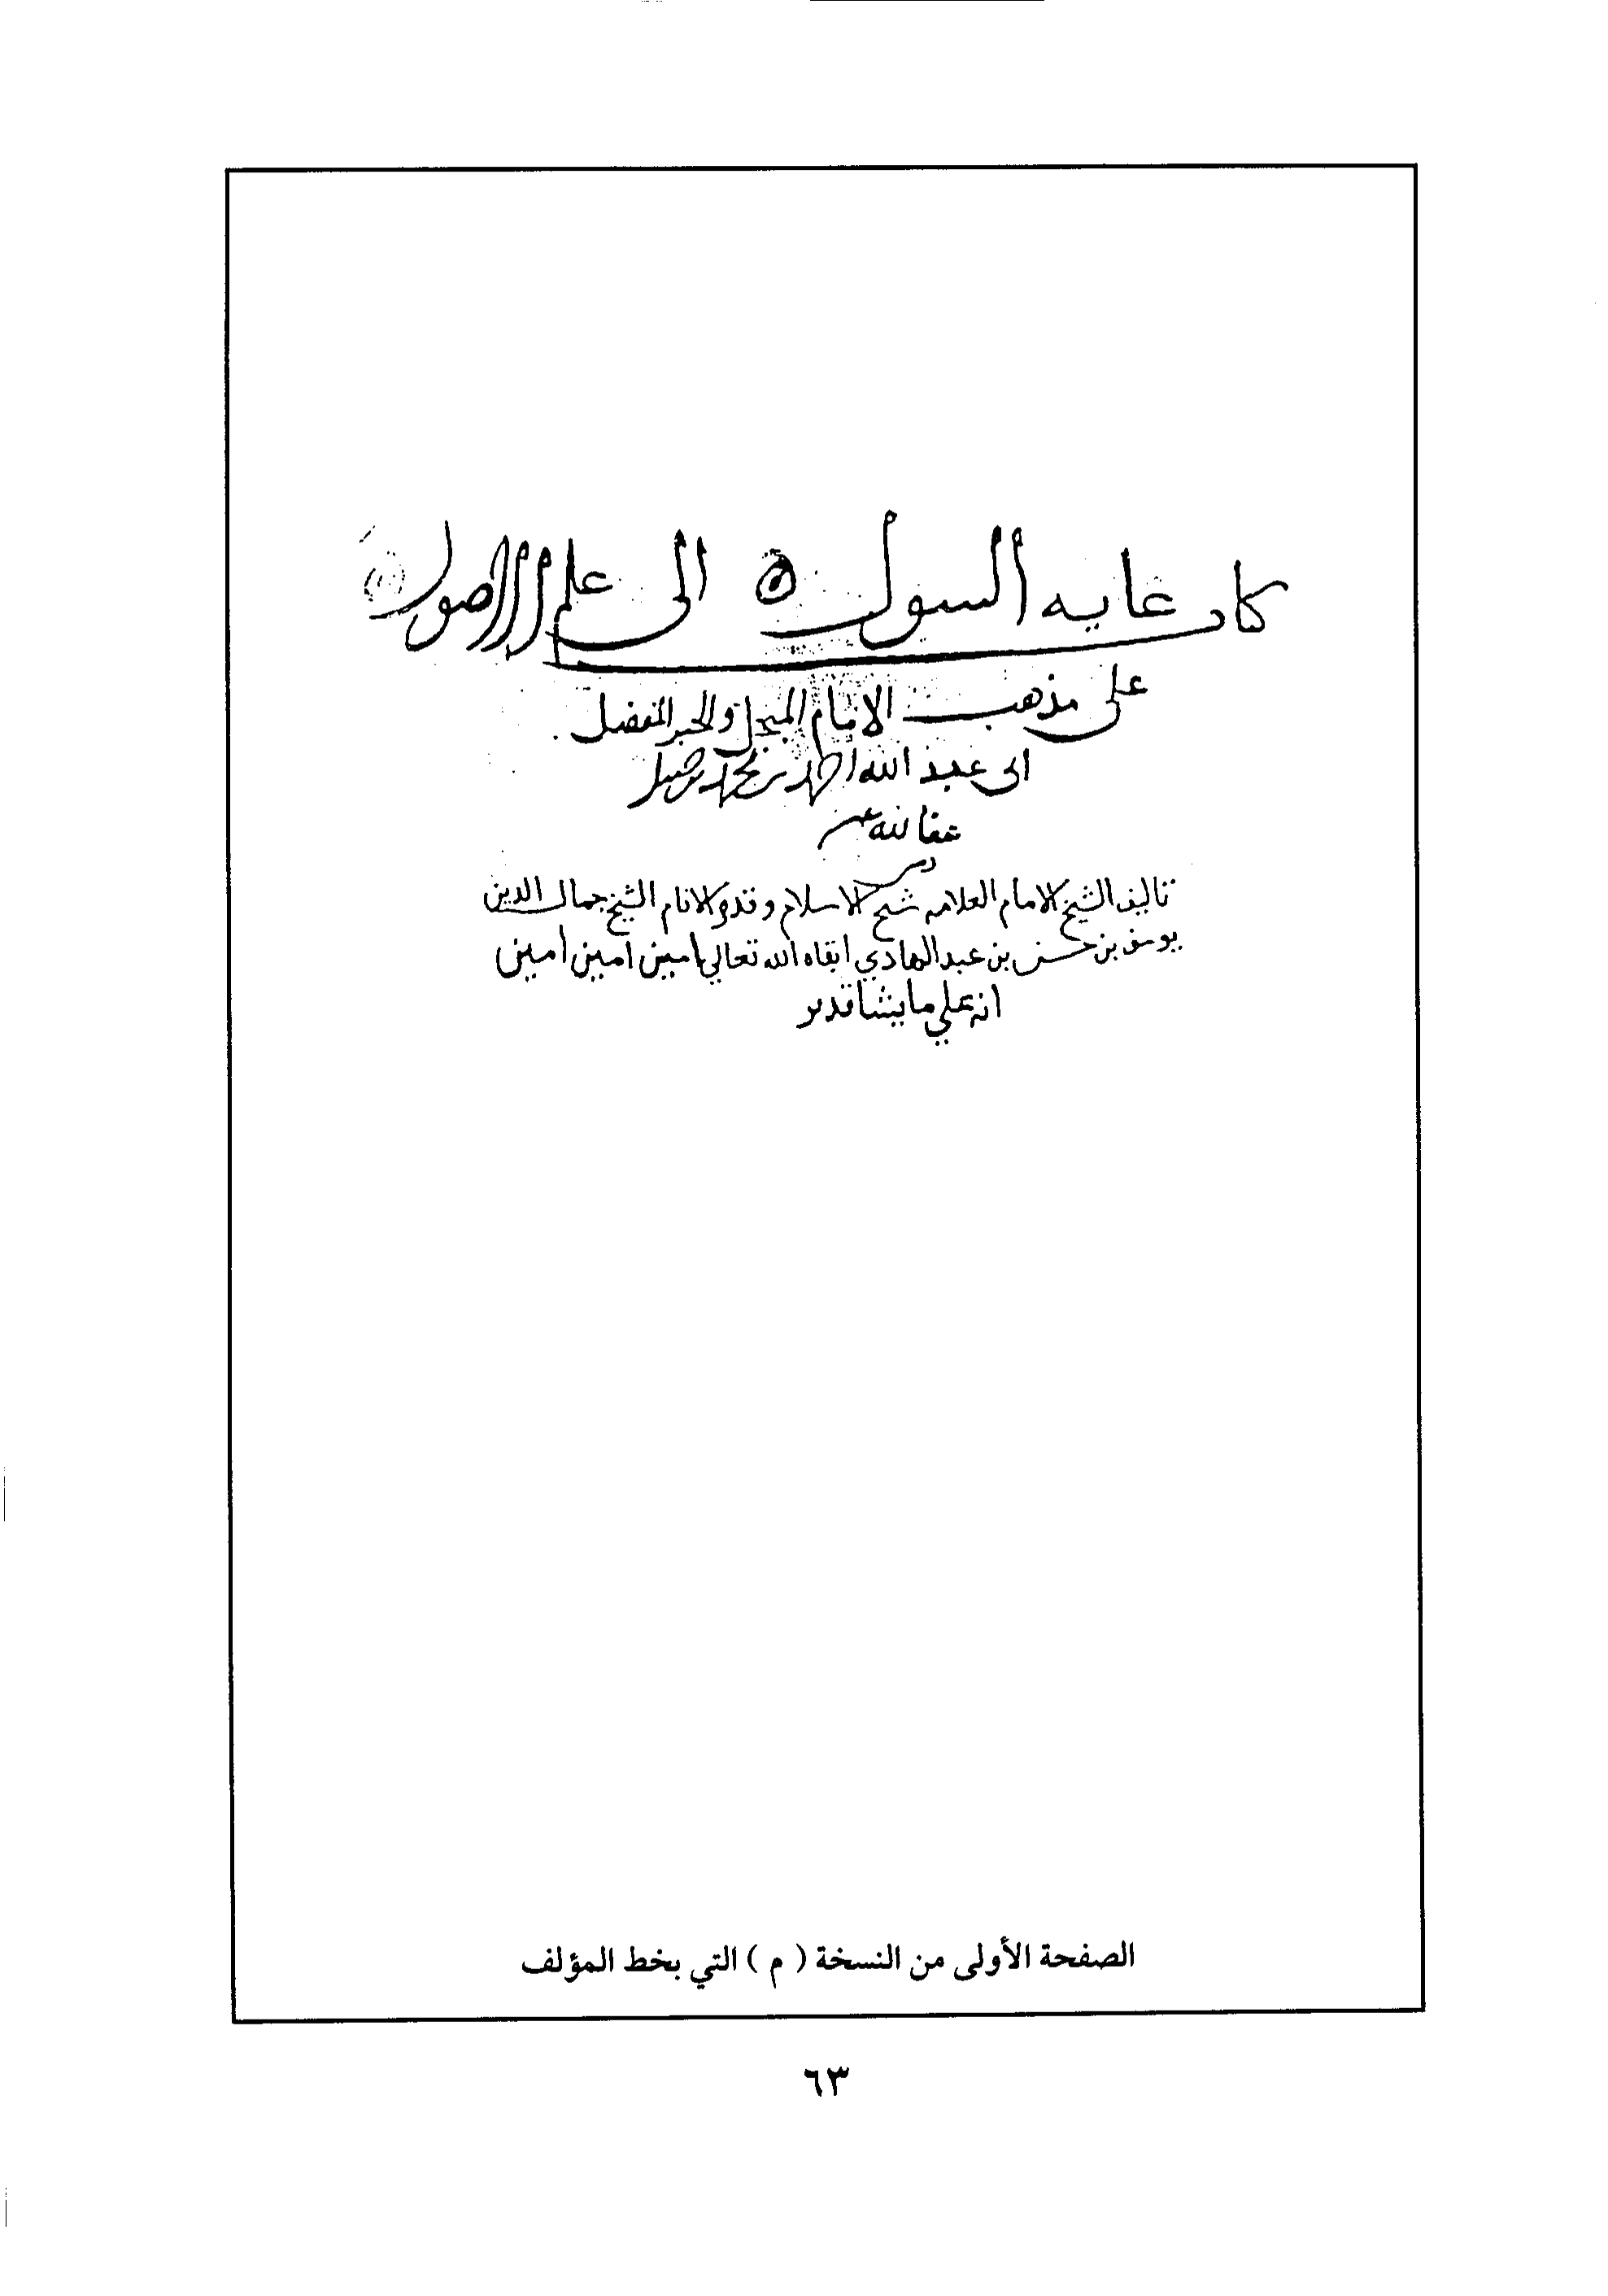 كتاب غايه السول الى علم الاصول
على مذهب الامام المبجل والحبر المفضل
ابى عبد الله احمد بن محمد بن حنبل
عفا الله عنه
تاليف الشيخ الامام العلامه شيخ الاسلام وقدوة الانام الشيخ جمال الدين
يوسف بن حسن بن عبد الهادي ابقاه الله تعالي امين امين امين
انه علي ما يشا قدير
الصفحة الأولى من النسخة ( م ) التي بخط المؤلف
٦٣